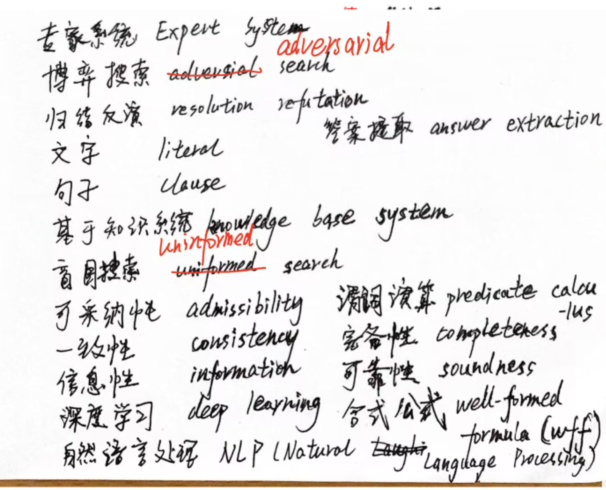 专家系统 Expert system
博弈搜索 adversial adversarial search
归结反演 resolution refutation
答案提取 answer extraction
文字 literal
句子 clause
基于知识系统 knowledge base system
盲目搜索 uniformed uninformed search
可采纳性 admissibility 谓词演算 predicate calcu
-lus
一致性 consistency 完备性 completeness
信息性 information 可靠性 soundness
深度学习 deep learning 合式公式 well-formed
formula (wff)
自然语言处理 NLP (Natural Language Processing)